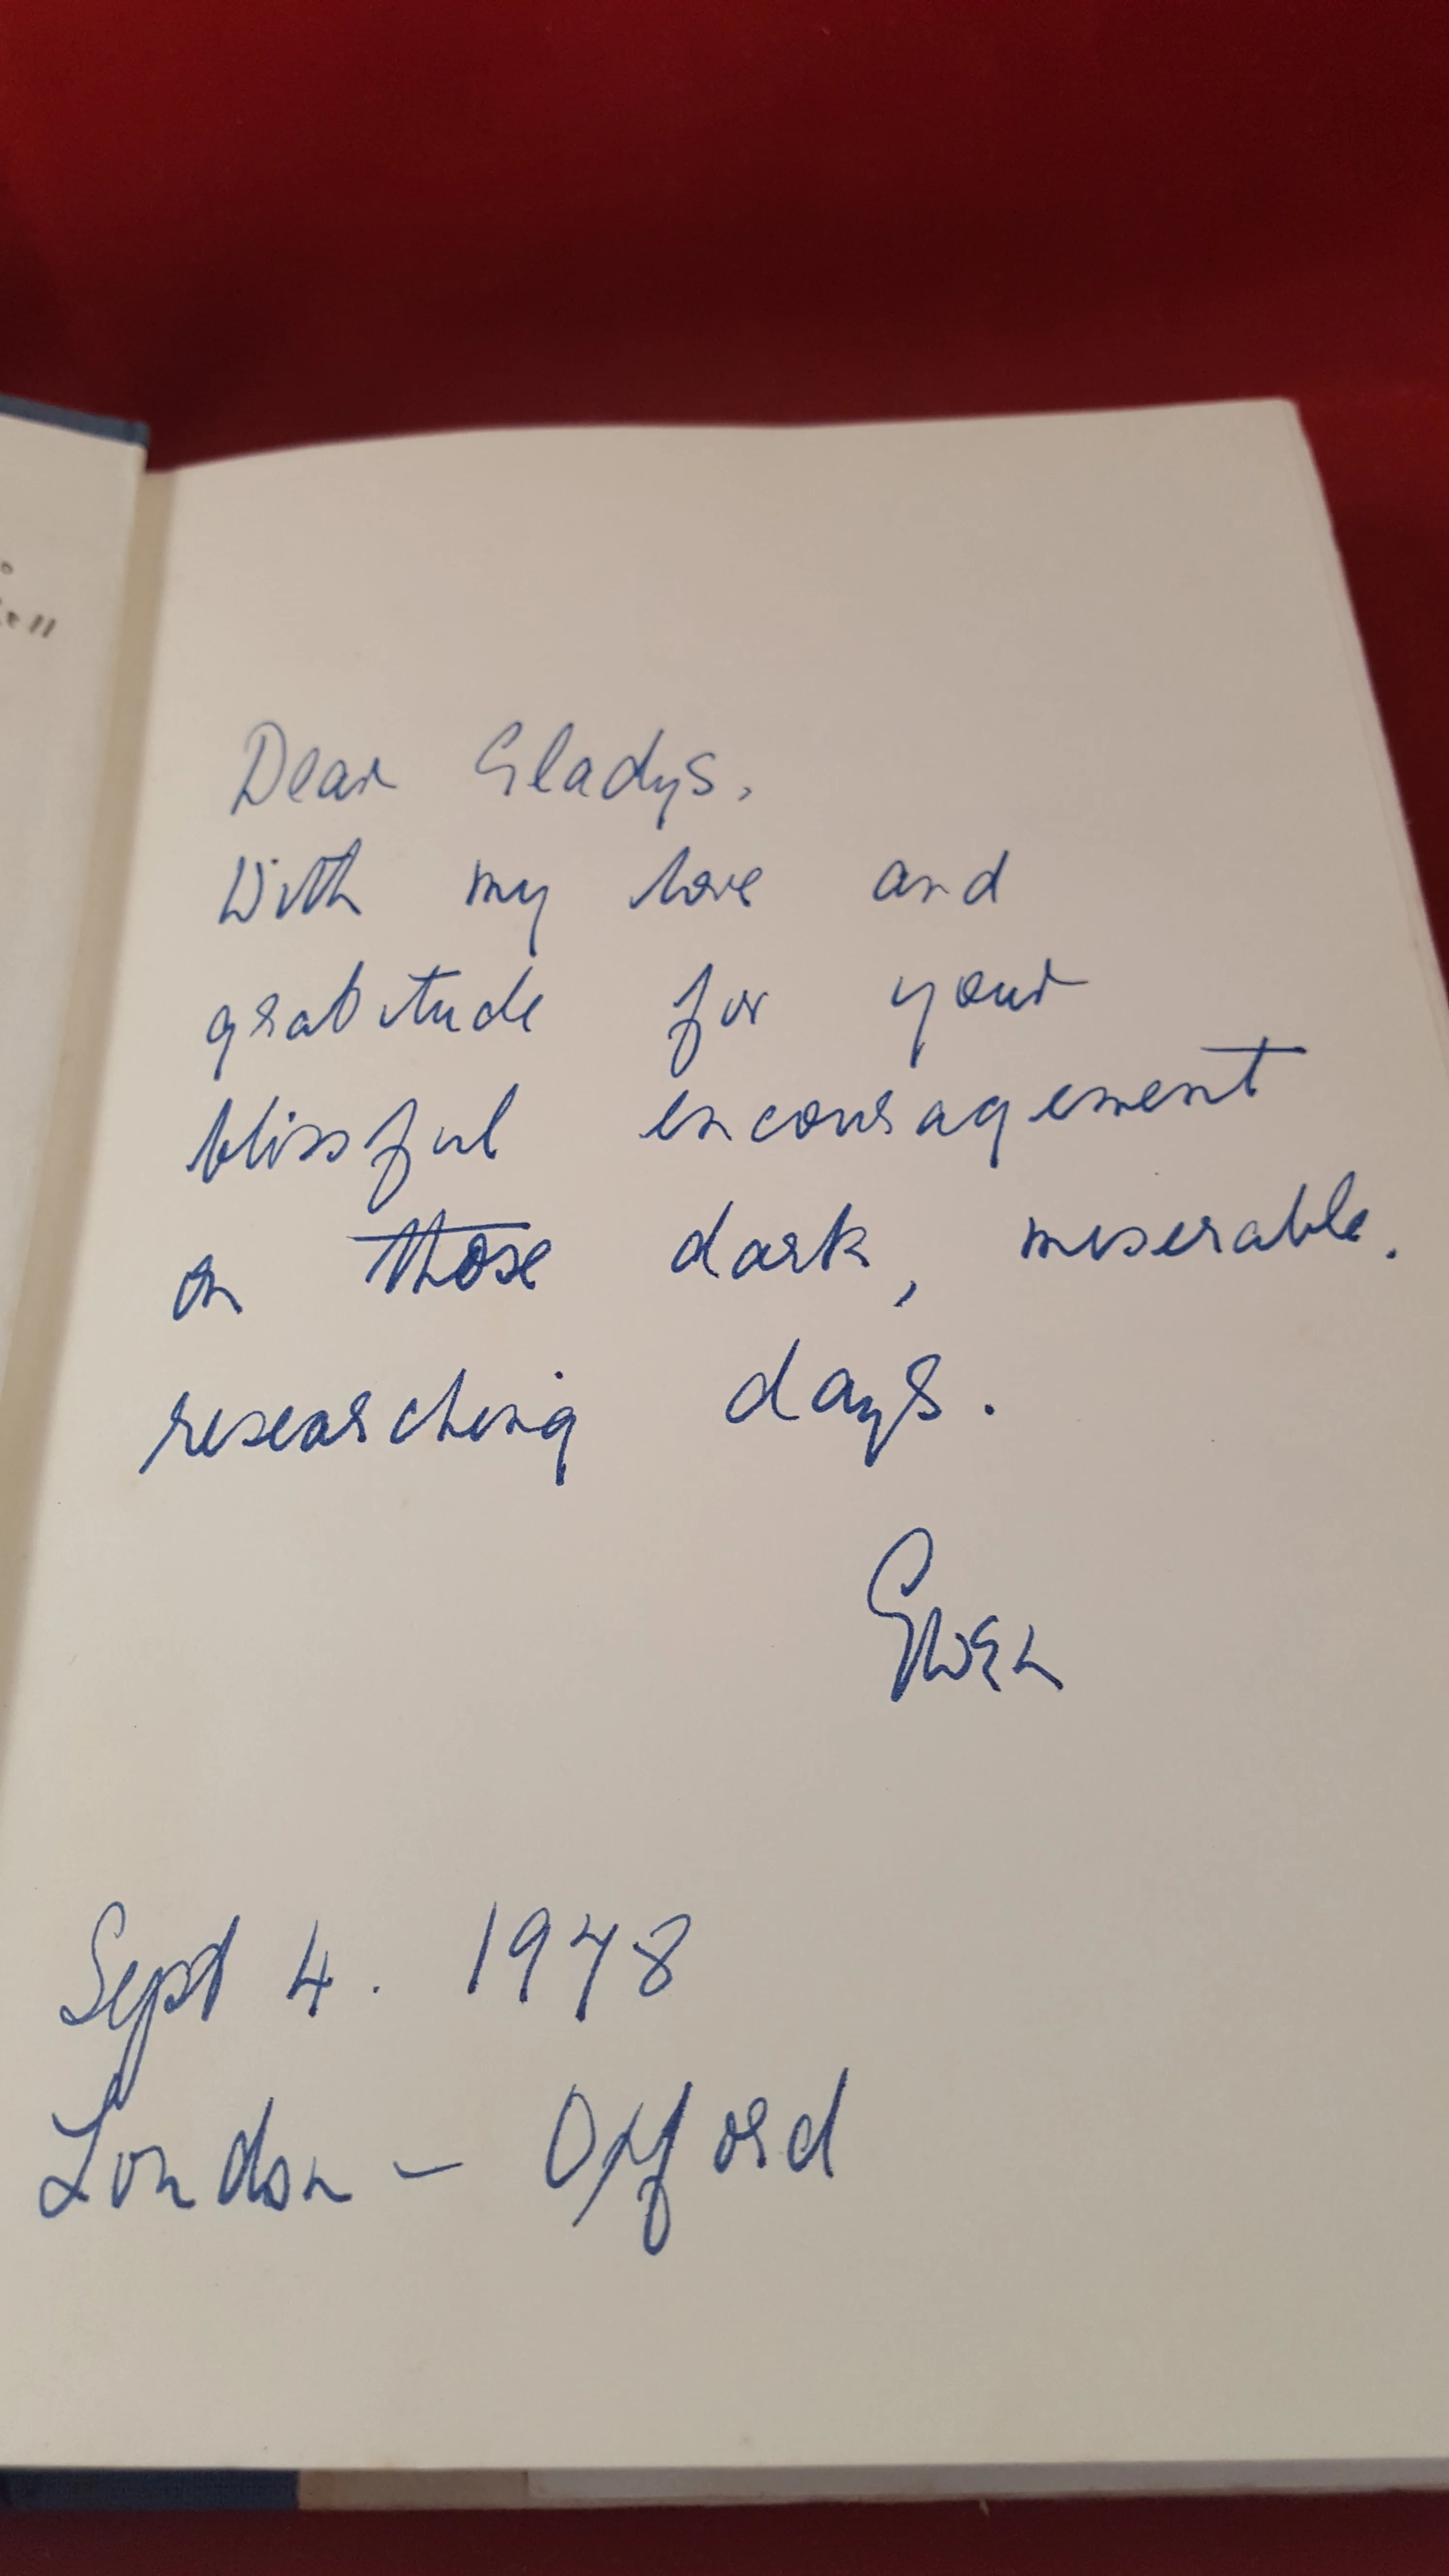 Dear Gladys,
With my love and
gratitude for your
blissful encouragement
on those dark, miserable.
researching days.
Gwen
Sept 4. 1948
London – Oxford